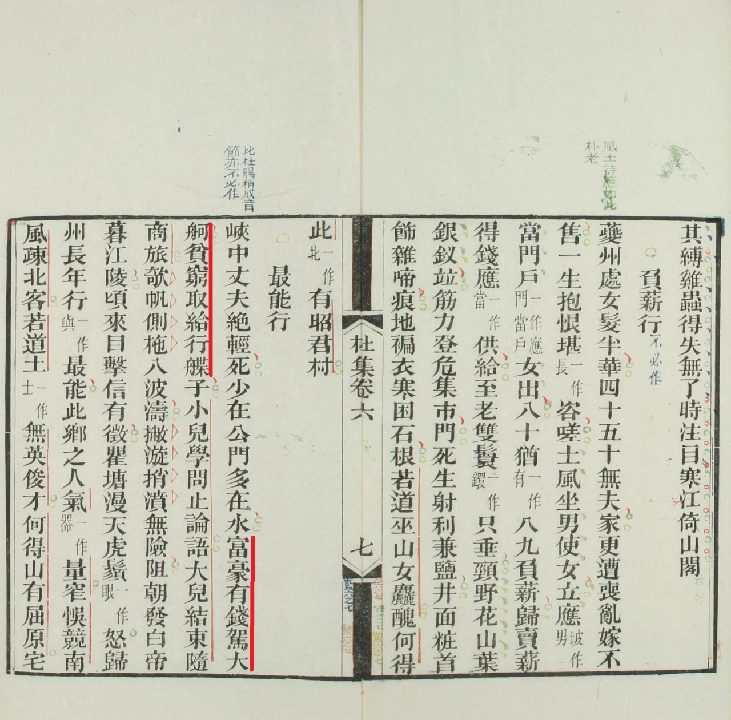 其縛雞蟲得失無了時注目寒江倚山閣
負薪行
不必作
夔州處女髮半華四十五十無夫家更遭喪亂嫁不
售一生抱恨堪一作長咨嗟土風坐男使女立應坡作男
當門戶一作應門當戶女出入十猶一作有八九負薪歸賣薪
得錢應一作當供給至老雙鬟一作鐶只垂頸野花山葉
銀釵竝筋力登危集市門死生射利兼鹽井面粧首
飾雜啼痕地褊衣寒困石根若道巫山女麤醜何得
杜集卷六
七
此一作北有昭君村
稍成音
節亦不必作
最能行
峽中丈夫絕輕死少在公門多在水富豪有錢駕大
舸貧窮取給行艓子小兒學問止論語大兒結束隨
商旅欹帆側柂入波濤撇漩捎濆無險阻朝發白帝
暮江陵頃來目擊信有徵瞿塘漫天虎鬚一作眼怒歸
州長年行一作與最能此鄉之人氣一作器量窄悞競南
風疎北客若道土一作士無英俊才何得山有屈原宅